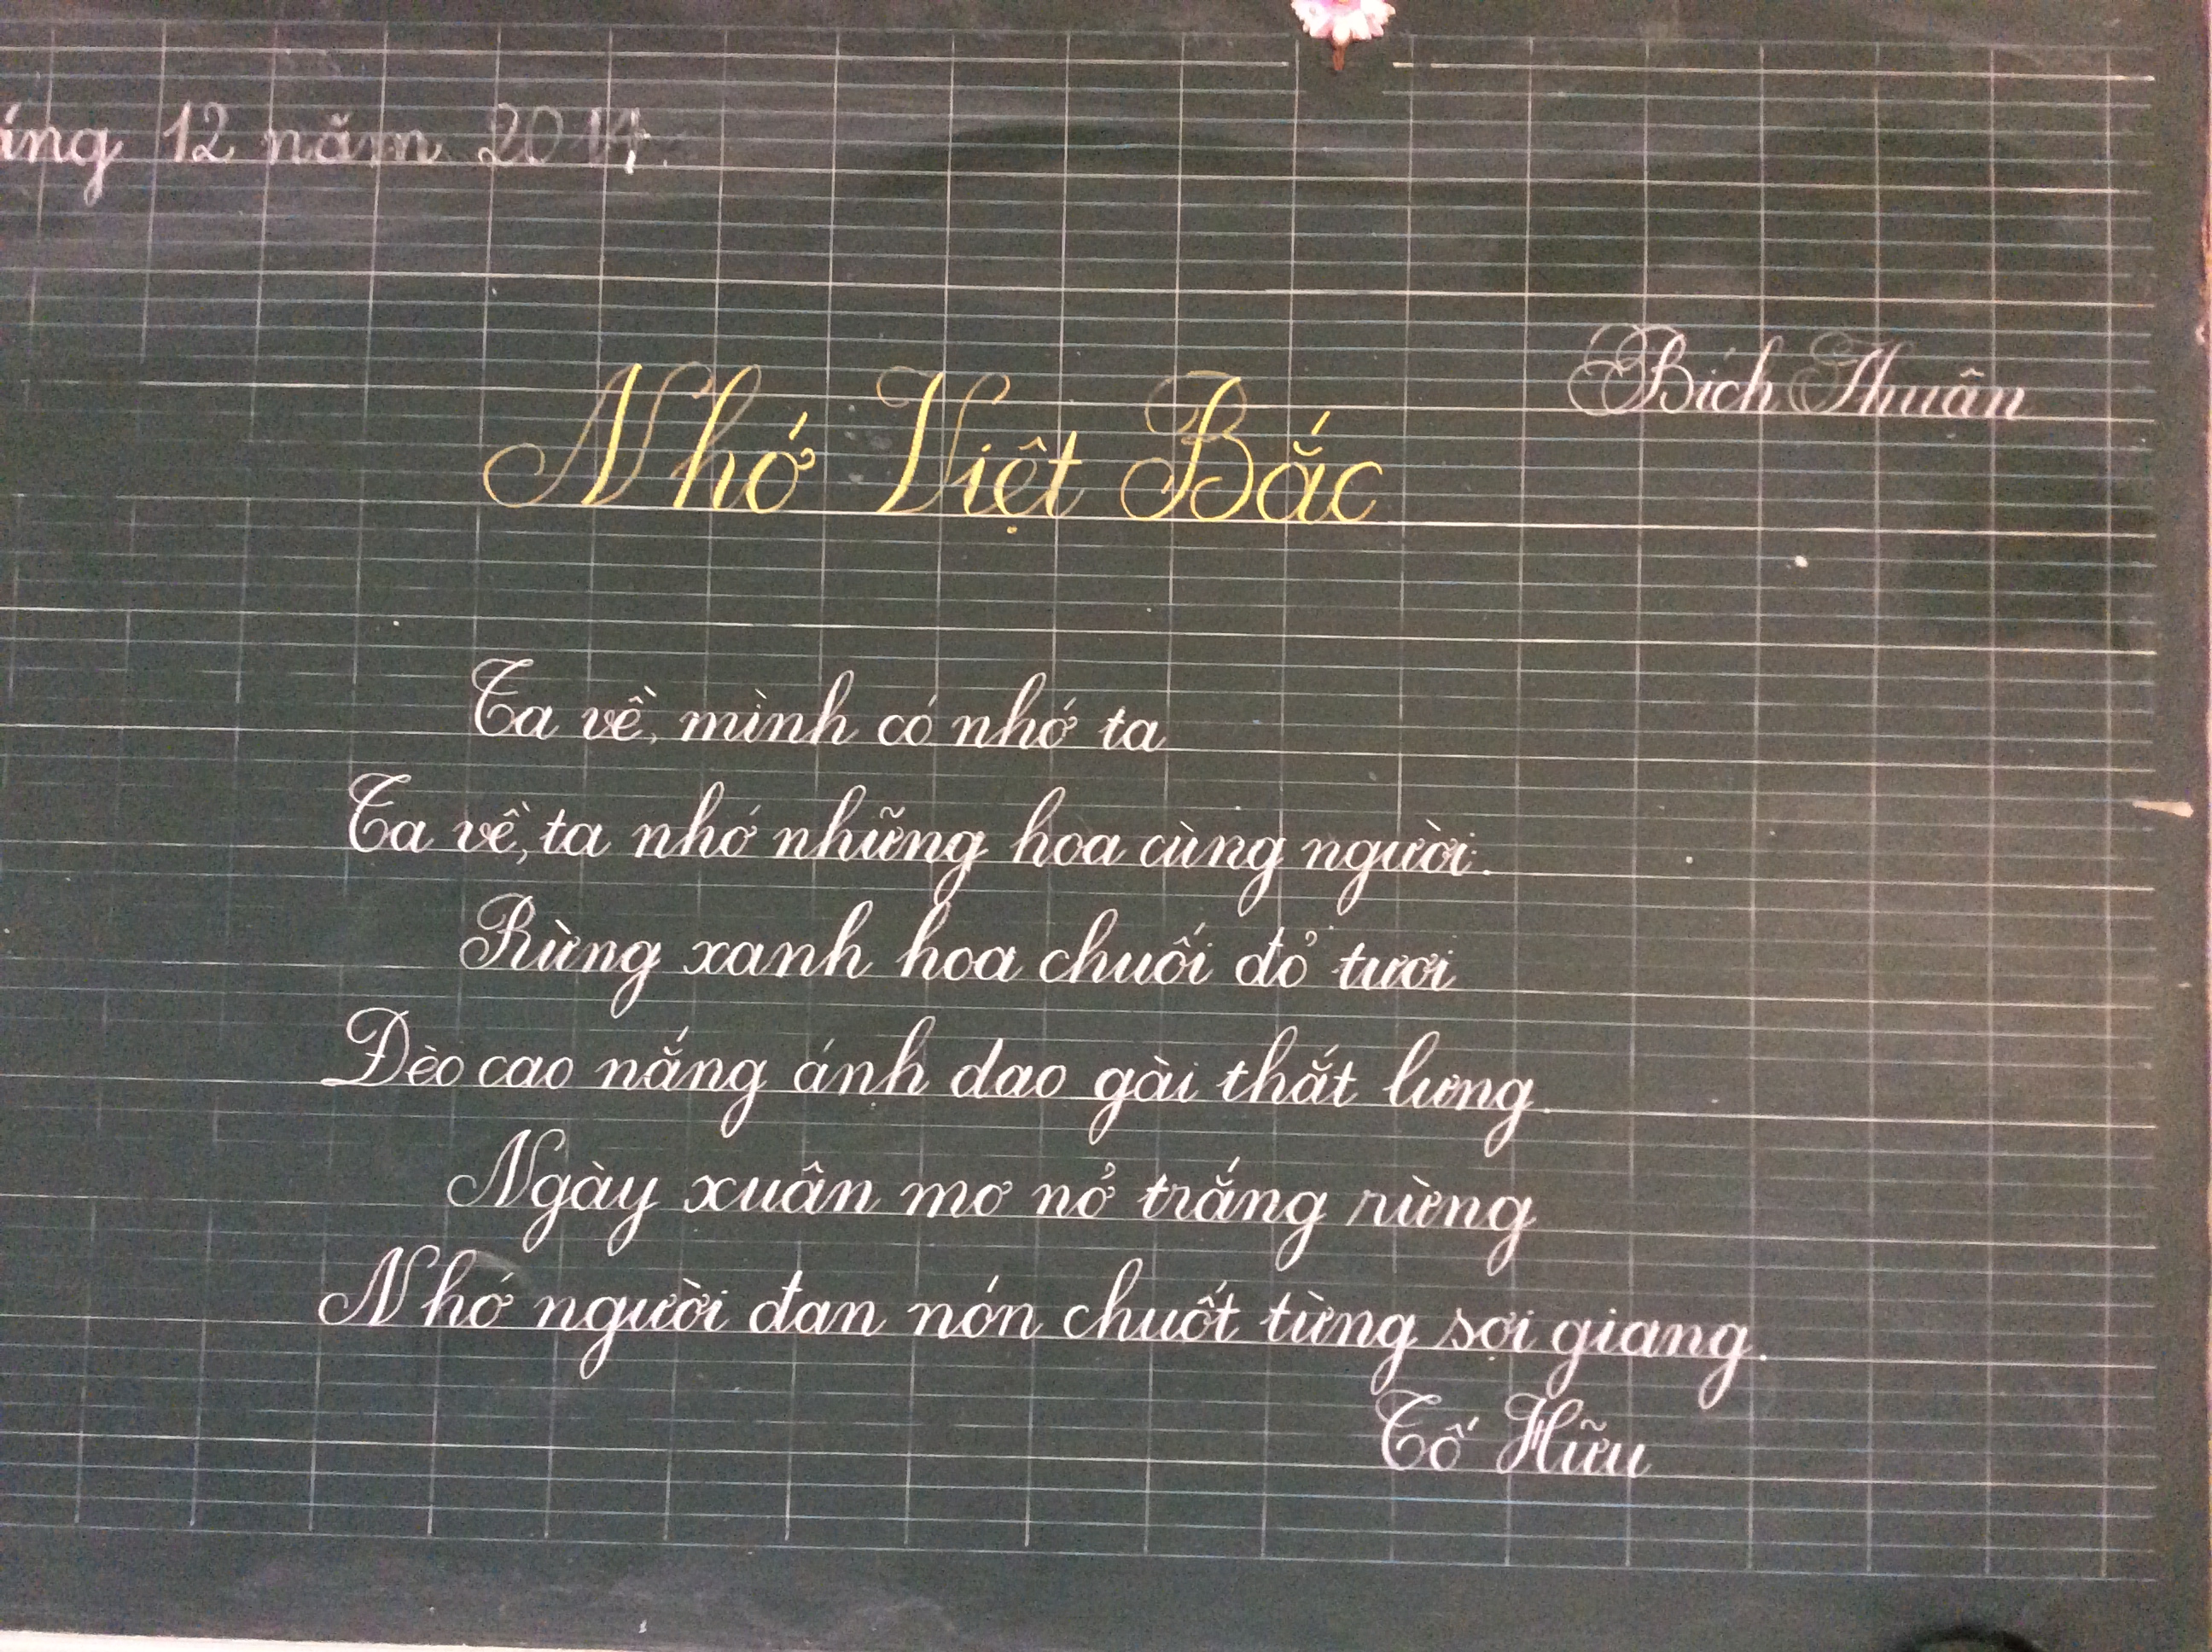 áng 12 năm 2014.
Bích Thuân
Nhớ Việt Bắc
Ta về, mình có nhớ ta
Ta về, ta nhớ những hoa cùng người.
Rừng xanh hoa chuối đỏ tươi
Đèo cao nắng ánh dao gài thắt lưng.
Ngày xuân mơ nở trắng rừng
Nhớ người đan nón chuốt từng sợi giang.
Tố Hữu